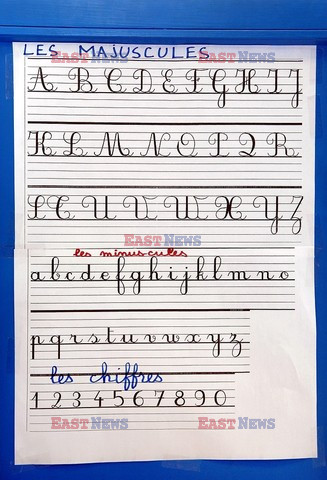 LES MAJUSCULES
A B C D E F G H I J
K L M N O P Q R
S T U V W X Y Z
les minuscules
a b c d e f g h i j k l m n o
p q r s t u v w x y z
les chiffres
1 2 3 4 5 6 7 8 9 0
EAST NEWS EAST NEWS
EAST NEWS
EAST NEWS EAST NEWS